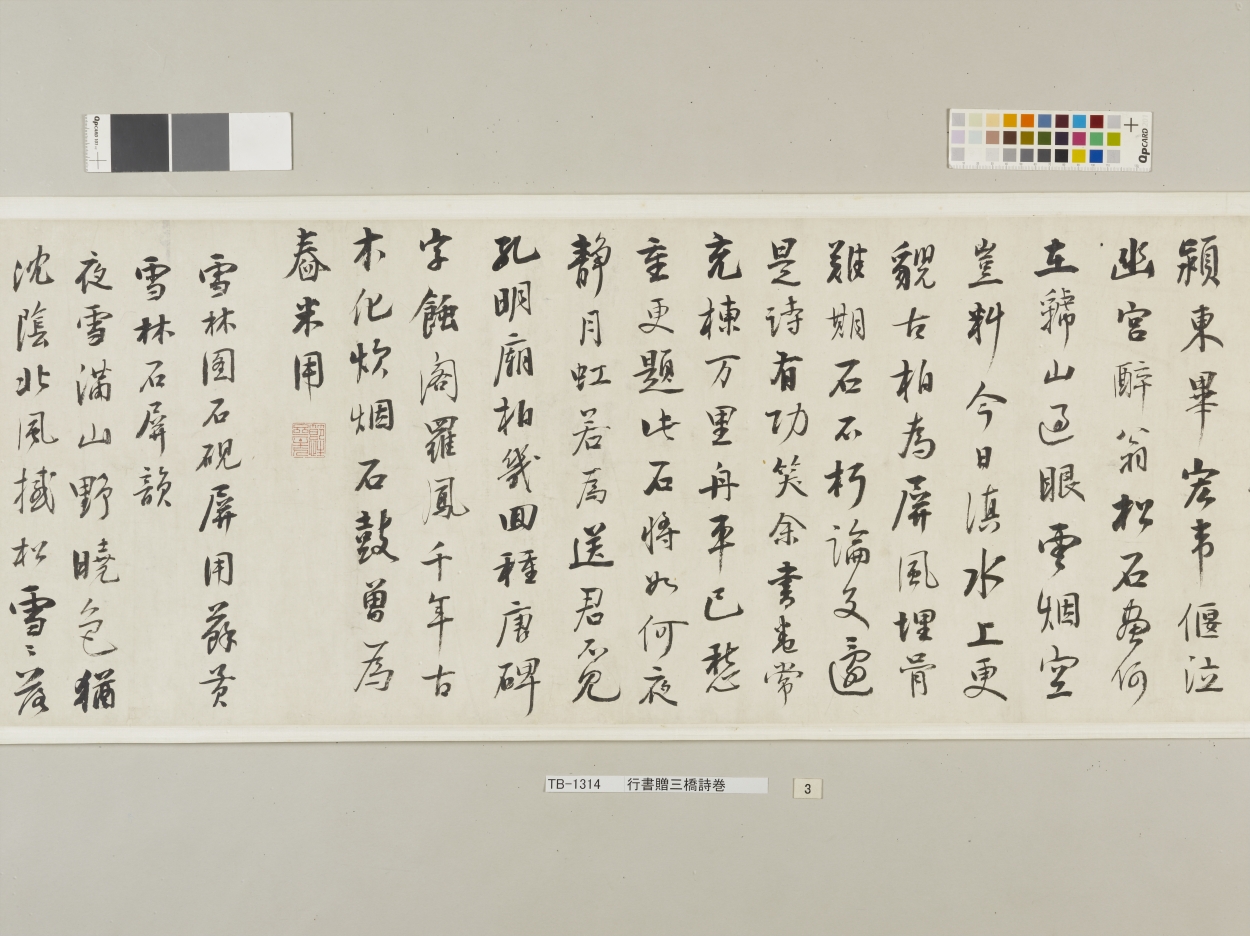 潁東畢宏韋偃泣
幽宮醉翁松石畫何
在虢山過眼雲烟空
豈料今日滇水上更
貌古柏為屏風埋骨
難期石不朽論文
是詩有功笑余書卷常
充棟万里舟車已愁
重更題此石將如何夜
靜月虹若為送君不見
孔明廟柏幾回種唐碑
字蝕閣羅鳳千年古
木化炊烟石鼓曾為
舂米用
雪林圖石硯屏用蘇黃
雪林石屏韻
夜雪滿山野曉色猶
沈陰北風撼松雪〻落
QpCARD
QpCARD
TB-1314 行書贈三橋詩巻
3